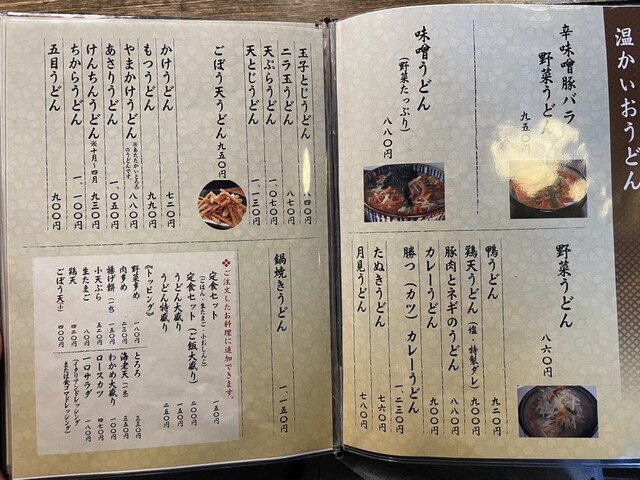 温かいおうどん
辛味噌豚バラ
野菜うどん
九五〇円
味噌うどん
(野菜たっぷり)
八八〇円
野菜うどん
八六〇円
鴨うどん
九二〇円
鶏天うどん(塩・特製ダレ)
豚肉とネギのうどん
八八〇円
カレーうどん
勝つ(カツ)カレーうどん
一、二三〇円
たぬきうどん
七六〇円
月見うどん
七八〇円
玉子とじうどん
ニラ玉うどん
八七〇円
天ぷらうどん
一、〇七〇円
天とじうどん
一、一三〇円
ごぼう天うどん
九五〇円
かけうどん
七二〇円
もつうどん
九九〇円
やまかけうどん
※あたたかいとろろのうどんです。
八八〇円
あさりうどん
一、〇五〇円
けんちんうどん
※十月〜四月
九三〇円
ちからうどん
一、一〇〇円
五目うどん
九〇〇円
鍋焼きうどん
一、一五〇円
❖ご注文したお料理に追加できます。
定食セット
(ごはん・生たまご・小おしんこ)
一五〇円
定食セット(ご飯大盛り)
二〇〇円
うどん大盛り
一五〇円
うどん特盛り
二五〇円
《トッピング》
野菜多め
一八〇円
肉多め
二三〇円
揚げ餅(一ヶ)
一五〇円
小天ぷら
五二〇円
生たまご
八〇円
鶏天
四二〇円
ごぼう天(小)
四〇〇円
とろろ
三三〇円
海老天(一本)
三五〇円
わかめ大盛り
一〇〇円
ロースカツ
四七〇円
一口サラダ
一八〇円
(イタリアンドレッシング
または金ゴマドレッシング)